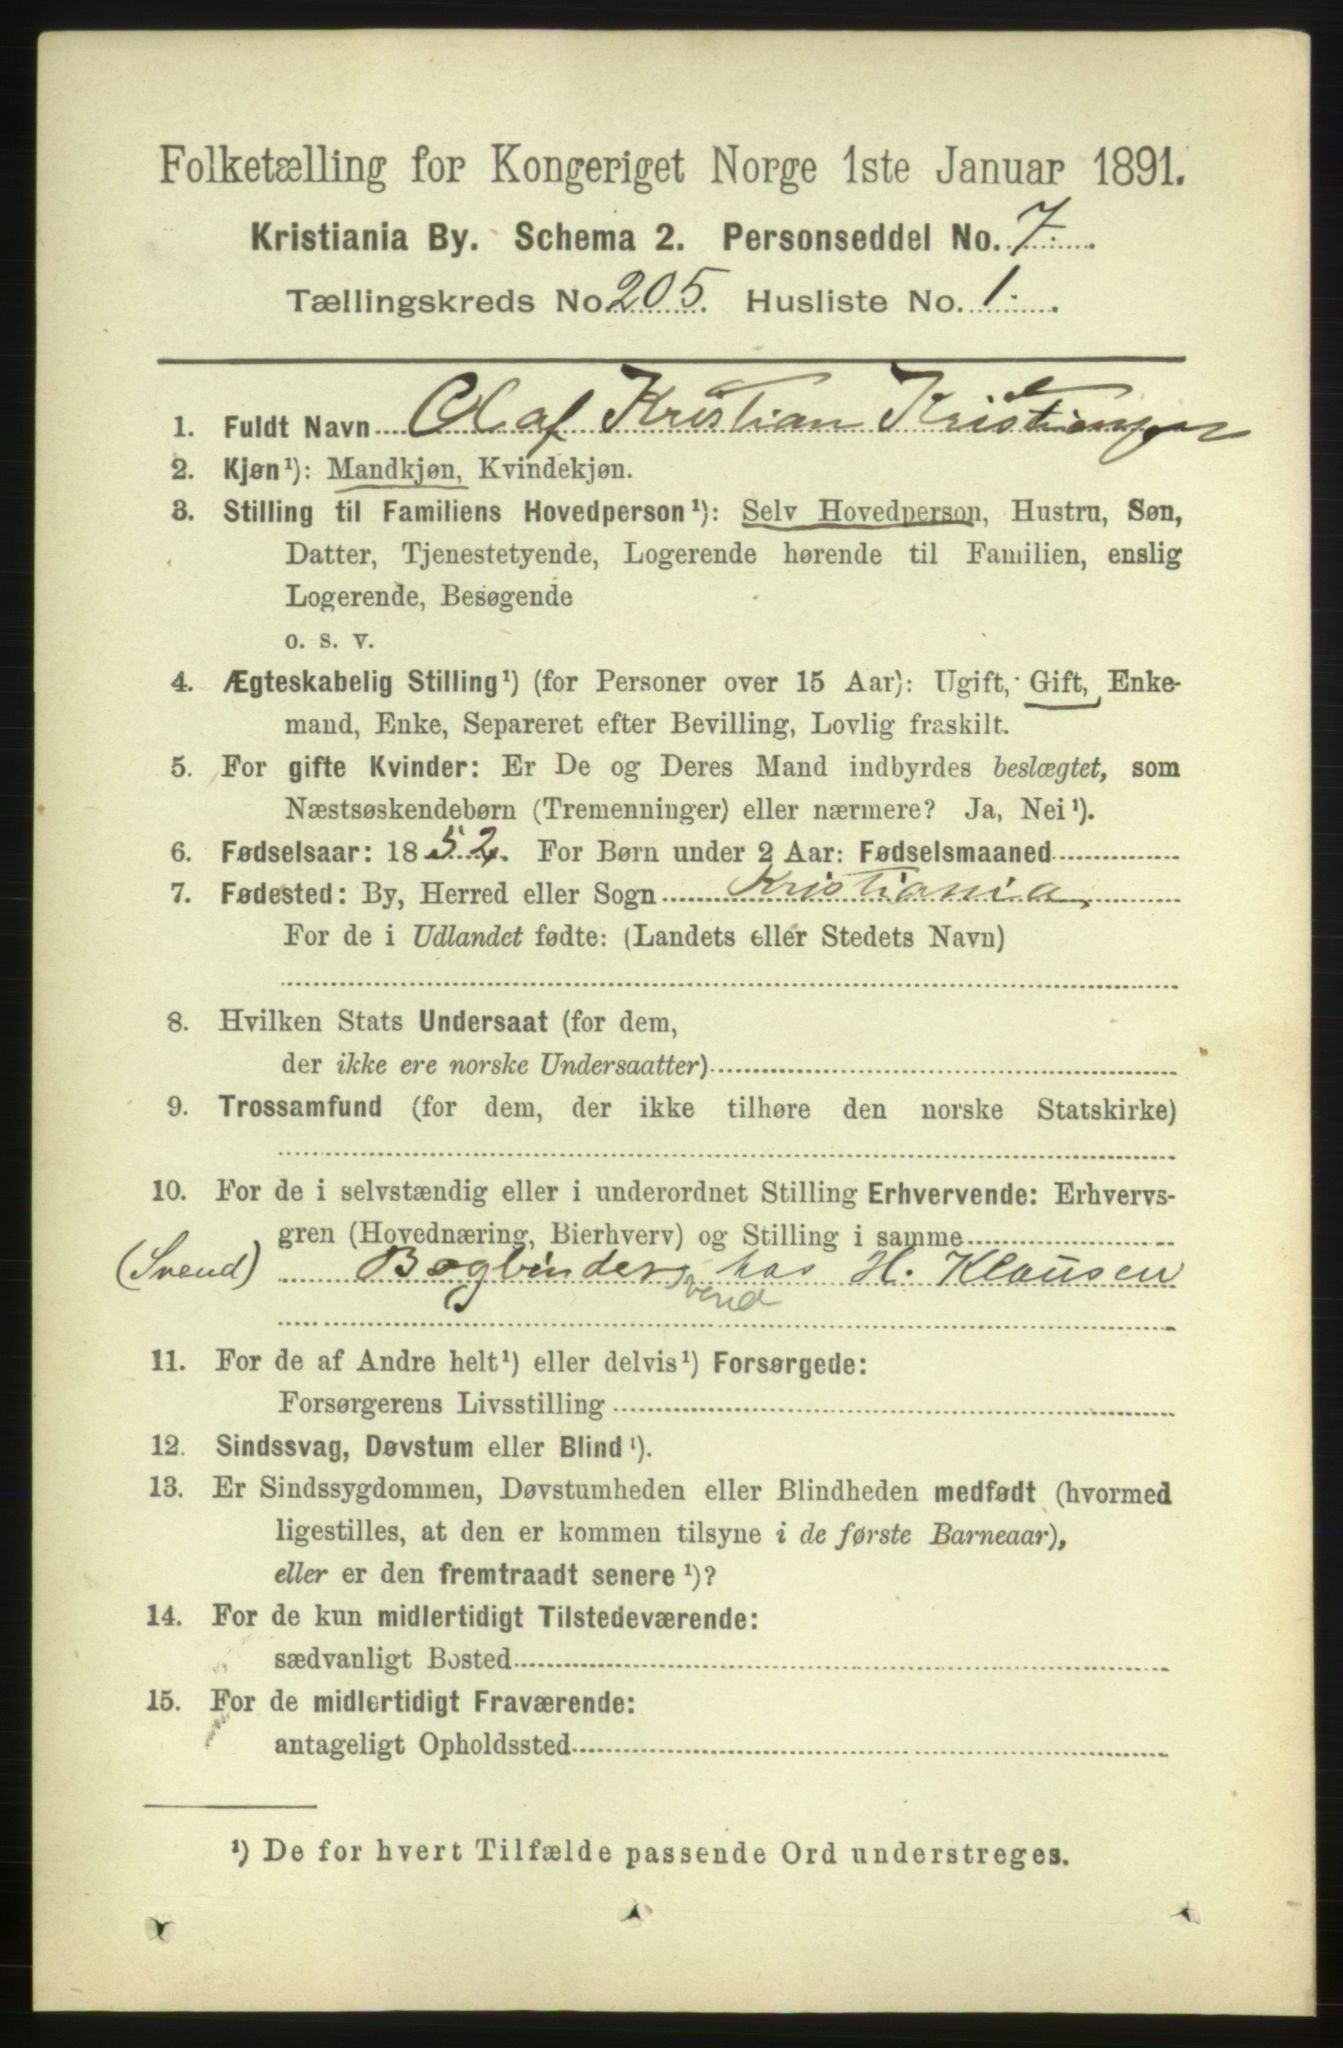 Folketælling for Kongeriget Norge 1ste Januar 1891.
Kristiania By. Schema 2. Personseddel No. 7.
Tællingskreds No. 205. Husliste No. 1.
1. Fuldt Navn Olaf Kristian Kristiansen
2. Kjøn¹): Mandkjøn, Kvindekjøn.
3. Stilling til Familiens Hovedperson¹): Selv Hovedperson, Hustru, Søn,
Datter, Tjenestetyende, Logerende hørende til Familien, enslig
Logerende, Besøgende
o. s. v.
4. Ægteskabelig Stilling¹) (for Personer over 15 Aar): Ugift, Gift, Enke-
mand, Enke, Separeret efter Bevilling, Lovlig fraskilt.
5. For gifte Kvinder: Er De og Deres Mand indbyrdes beslægtet, som
Næstsøskendebørn (Tremenninger) eller nærmere? Ja, Nei¹).
6. Fødselsaar: 1852. For Børn under 2 Aar: Fødselsmaaned
7. Fødested: By, Herred eller Sogn Kristiania,
For de i Udlandet fødte: (Landets eller Stedets Navn)
8. Hvilken Stats Undersaat (for dem,
der ikke ere norske Undersaatter)
9. Trossamfund (for dem, der ikke tilhøre den norske Statskirke)
10. For de i selvstændig eller i underordnet Stilling Erhvervende: Erhvervs-
gren (Hovednæring, Bierhverv) og Stilling i samme
(Svend) Bogbinder hos H. Klausen
svend
11. For de af Andre helt¹) eller delvis¹) Forsørgede:
Forsørgerens Livsstilling
12. Sindssvag, Døvstum eller Blind¹).
13. Er Sindssygdommen, Døvstumheden eller Blindheden medfødt (hvormed
ligestilles, at den er kommen tilsyne i de første Barneaar),
eller er den fremtraadt senere¹)?
14. For de kun midlertidigt Tilstedeværende:
sædvanligt Bosted
15. For de midlertidigt Fraværende:
antageligt Opholdssted
¹) De for hvert Tilfælde passende Ord understreges.